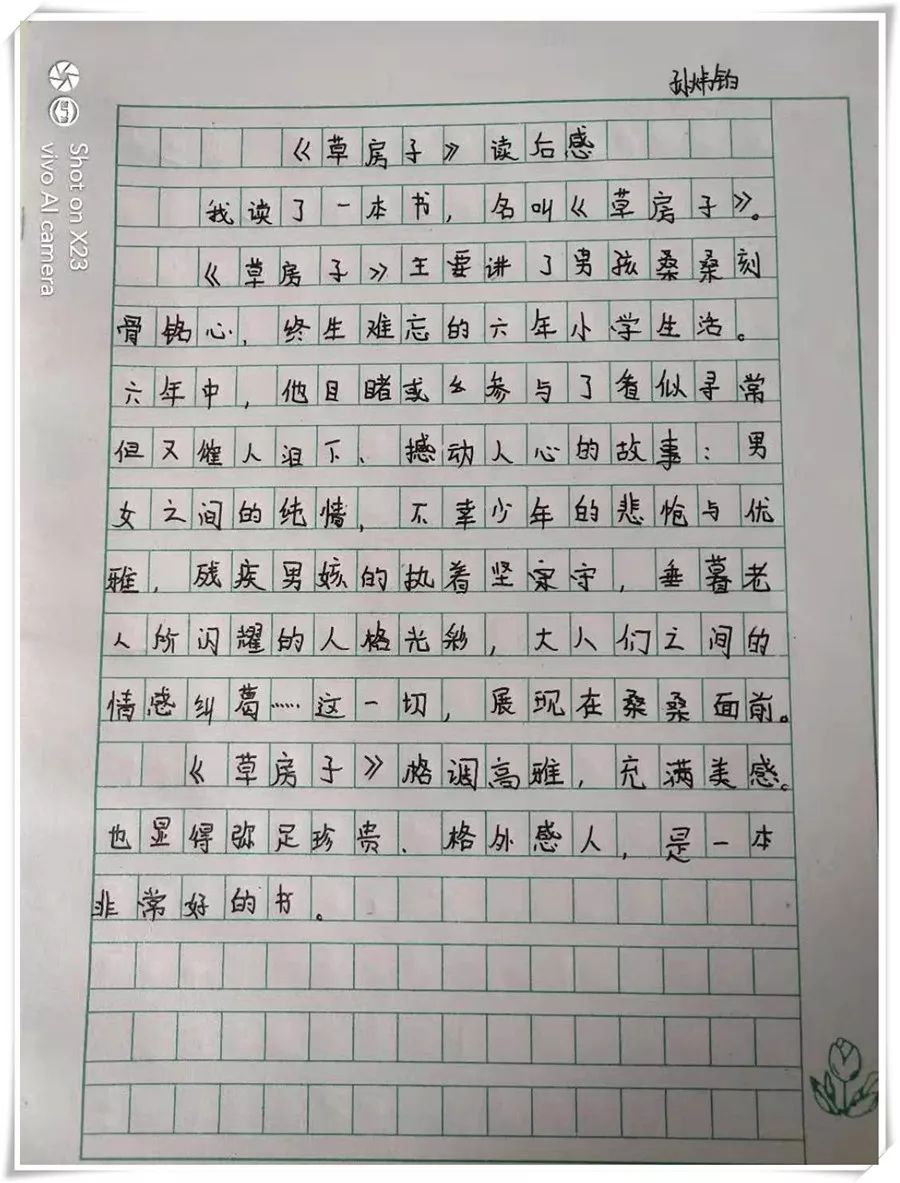 孙炜
《草房子》读后感
我读了一本书，名叫《草房子》。
《草房子》主要讲了男孩桑桑刻
骨铭心、终生难忘的六年小学生活。
六年中，他目睹或参与了看似寻常
但又催人泪下、撼动人心的故事：男
女之间的纯情，不幸少年的悲怆与优
雅，残疾男孩的执着坚守，垂暮老
人所闪耀的人格光彩，大人们之间的
情感纠葛……这一切，展现在桑桑面前。
《草房子》格调高雅，充满美感。
也显得弥足珍贵、格外感人，是一本
非常好的书。
Shot on X23
vivo AI camera